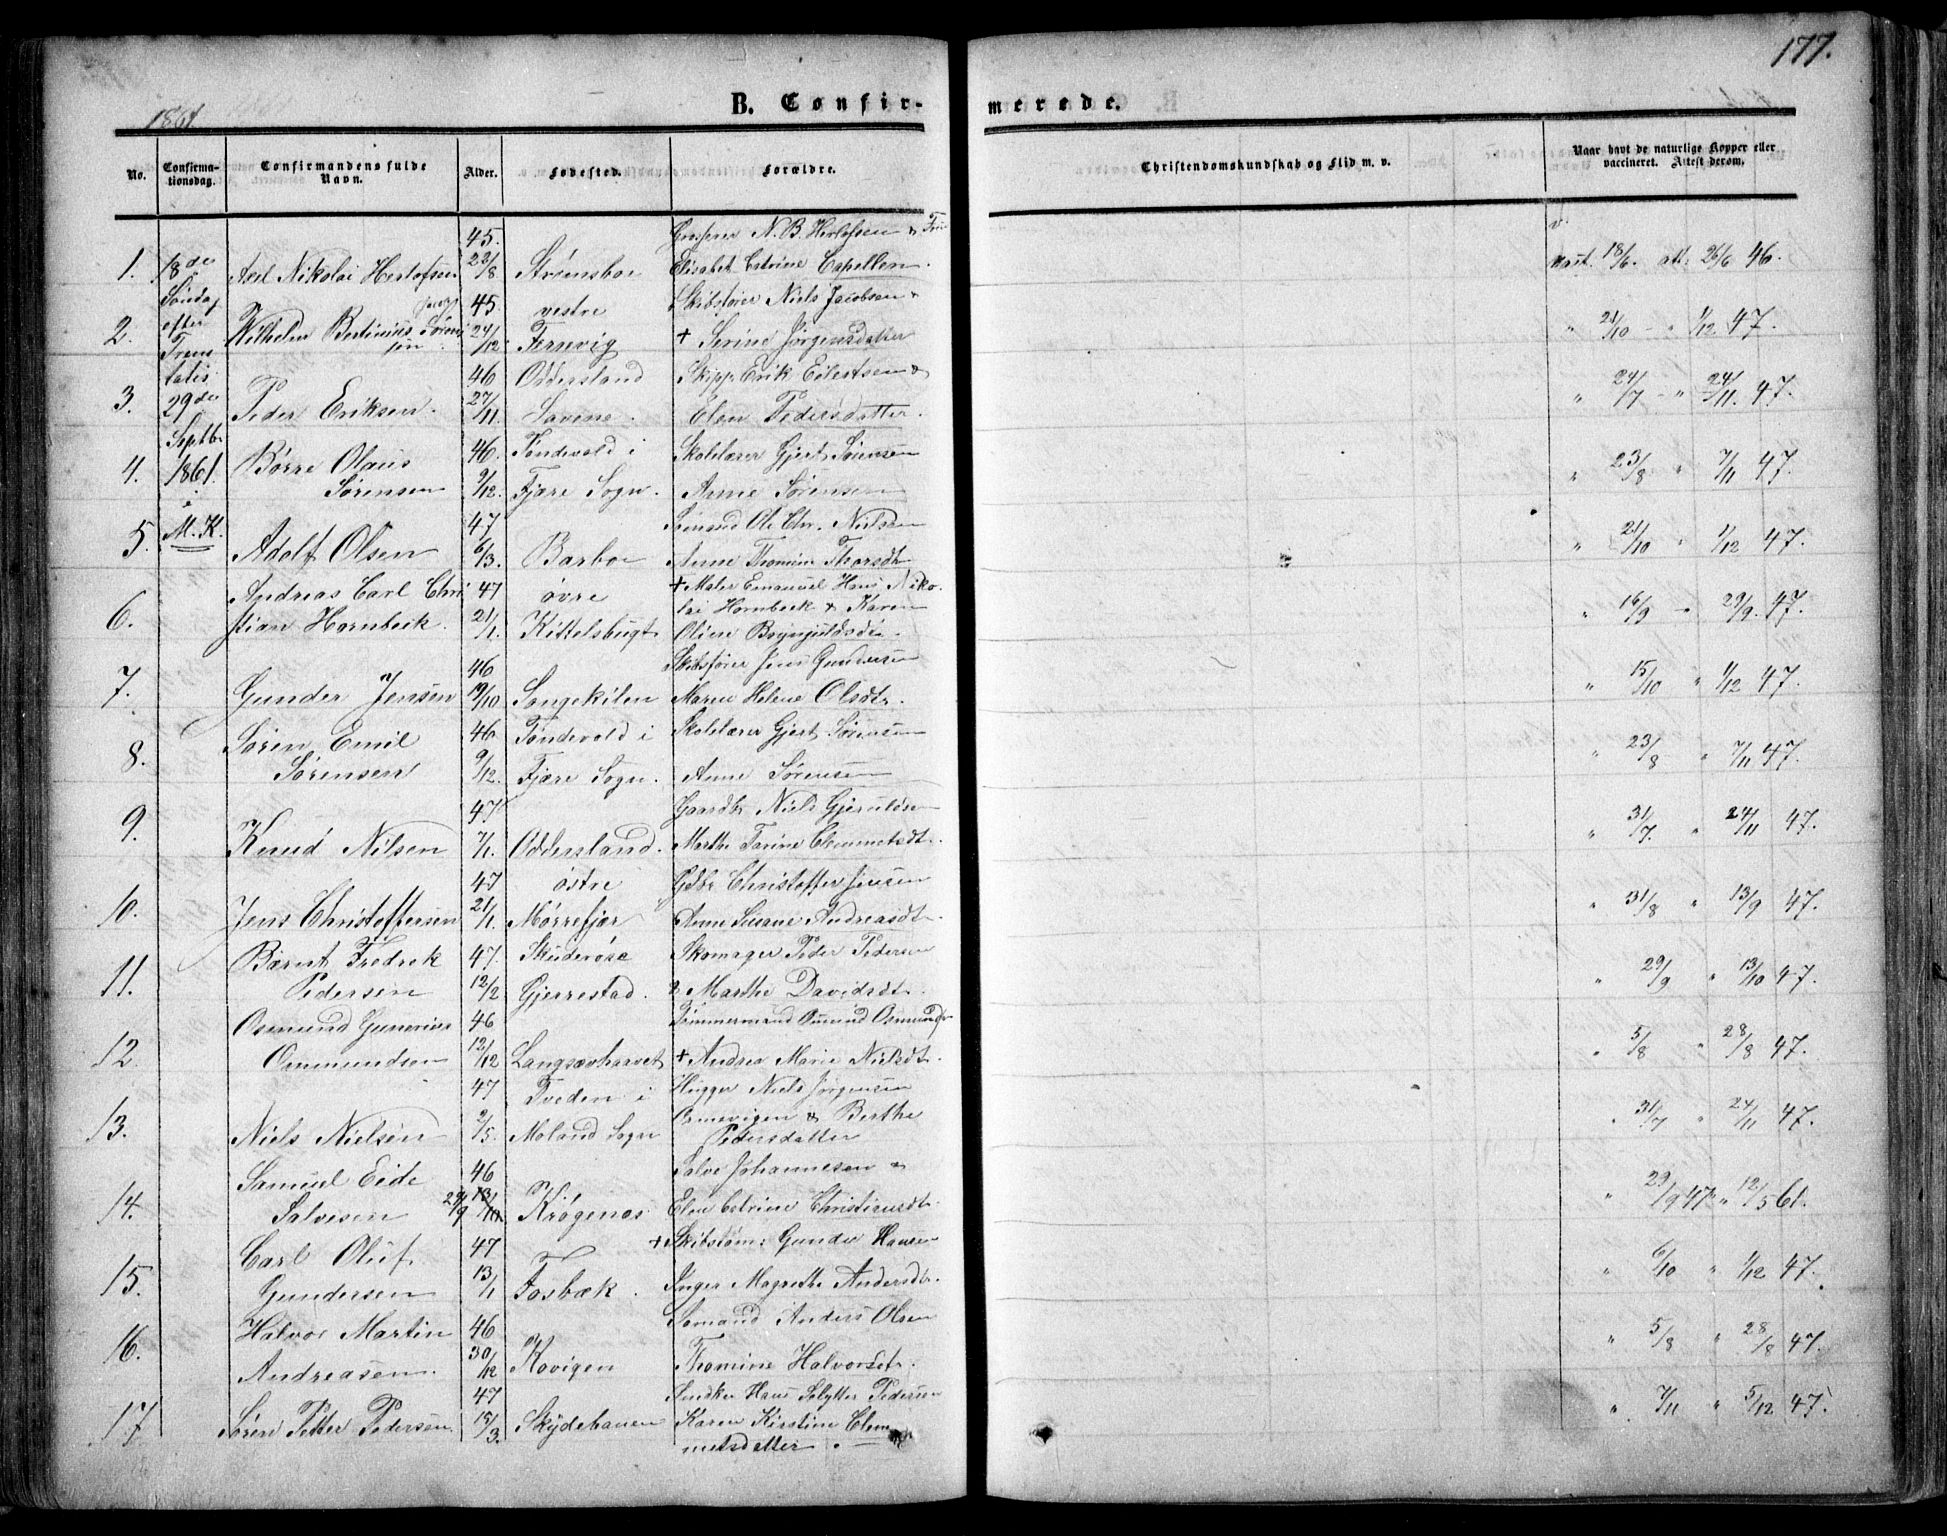 177.
1861
B. Confir-
merede.
No.
Confirma-
tionsdag.
Confirmandens fulde
Navn.
Alder.
Fødested.
Forældre.
Christendomskundskab og Flid m. v.
Naar havt de naturlige Kopper eller
vaccineret. Attest derom.
1.
18de
Søndag
efter
Trini-
tatis
29de
Septbr
1861.
i
M. K.
Axel Nikolai Herlofsen
45.
23/8
Strømsboe
N. B. Herlofsen & Fru
Elisabet Cathrine Capellen.
18/6. att: 26/6 46.
2.
Wilhelm Bertinius Søren
sen
45
24/12
vestre
Terrevig
Skibsfører Niels Jacobsen &
+ Serine Jørgensdatter
" 21/10 - " 1/12 47.
3.
Peder Eriksen.
46
27/11
Oddersland
Savene.
Skipp. Erik Eilertsen &
Elen Pedersdatter.
" 24/7 - " 24/11. 47.
4.
Børre Olaus
Sørensen
46.
9/12.
Tøndevold i
Fjære Sogn.
Skolelærer Gjert Sørensen
Anne Sørensen
" 23/8 " 7/11 47.
5.
Adolf Olsen
47
6/3.
Barboe
Sømand Ole Chr. Nielsen
Anne Thomine Thorsdt
" 21/10 " 1/12 47.
6.
Andreas Carl Chri
stian Hornbeck.
47
21/1.
øvre
Kittelsbugt
+ Maler Emanuel Hans Niko-
lai Hornbeck & Karen
Oline
" 16/9 - 29/9. 47.
7.
Gunder Jensen
46
19/10
Songekilen
Skibsfører Jens Gundersen
Maren Helene Olsdtr.
" 15/10 " 1/12 47.
8.
Søren Emil
Sørensen
46
9/12.
Tøndevold i
Fjære Sogn.
Skolelærer Gjert Sørensen
Anne Sørensen
" 23/8 " 7/11 47.
9.
Knud Nilsen
47
7/1.
Oddersland.
Gaardbr Niels Gjeruldsen
Marthe Tarine Clemmetsdt.
" 31/7. " 24/11 47.
10.
Jens Christoffersen
47
21/1.
østre
Mørrefjær
Gdbr Christoffer Jensen
Anne Susane Andreasdt.
" 31/8 " 13/9 47.
11.
Bærnt Fredrek
Pedersen
47.
12/2
Skuderøse
Gjerrestad.
Skomager Peder Pedersen
& Marthe Davidsdt.
" 29/9 " 13/10 47.
12.
Osmund Gunerius
Ommundsen
46
12/12
Langsævhaavet
Tømmermand Osmund Osmundsen
+ Andrea Marie Nielsdt.
" 5/8 " 28/8 47.
13.
Niels Nielsen
47
2/5.
Tveden i
Moland Sogn
Hugger Niels Jørgensen
Osmevigen & Berthe
Pedersdatter
" 31/7 " 24/11 47.
14.
Samuel Eide
Salvesen
46
29/9 13/10.
Krøgenæs
Salve Johannesen &
Elen Catrine Christiansdt.
" 29/9 47 " 12/5 61.
15.
Carl Oluf
Gundersen
47
13/1
Fosbæk.
+ Skibstøm: Gunder Hansen
Inger Magrethe Andersdt
" 6/10 " 1/12 47.
16.
Halvor Martin
Andreasen.
46
30/12
Kovigen
Sømand Anders Olsen
Thomine Halvorsdt.
" 5/8 " 28/8 47.
17.
Søren Petter Pedersen
47
15/3.
Skydehauen
Snedker Hans Slytter Pedersen
Karen Kirstine Clem
metsdatter.
" 7/11 " 5/12 47.